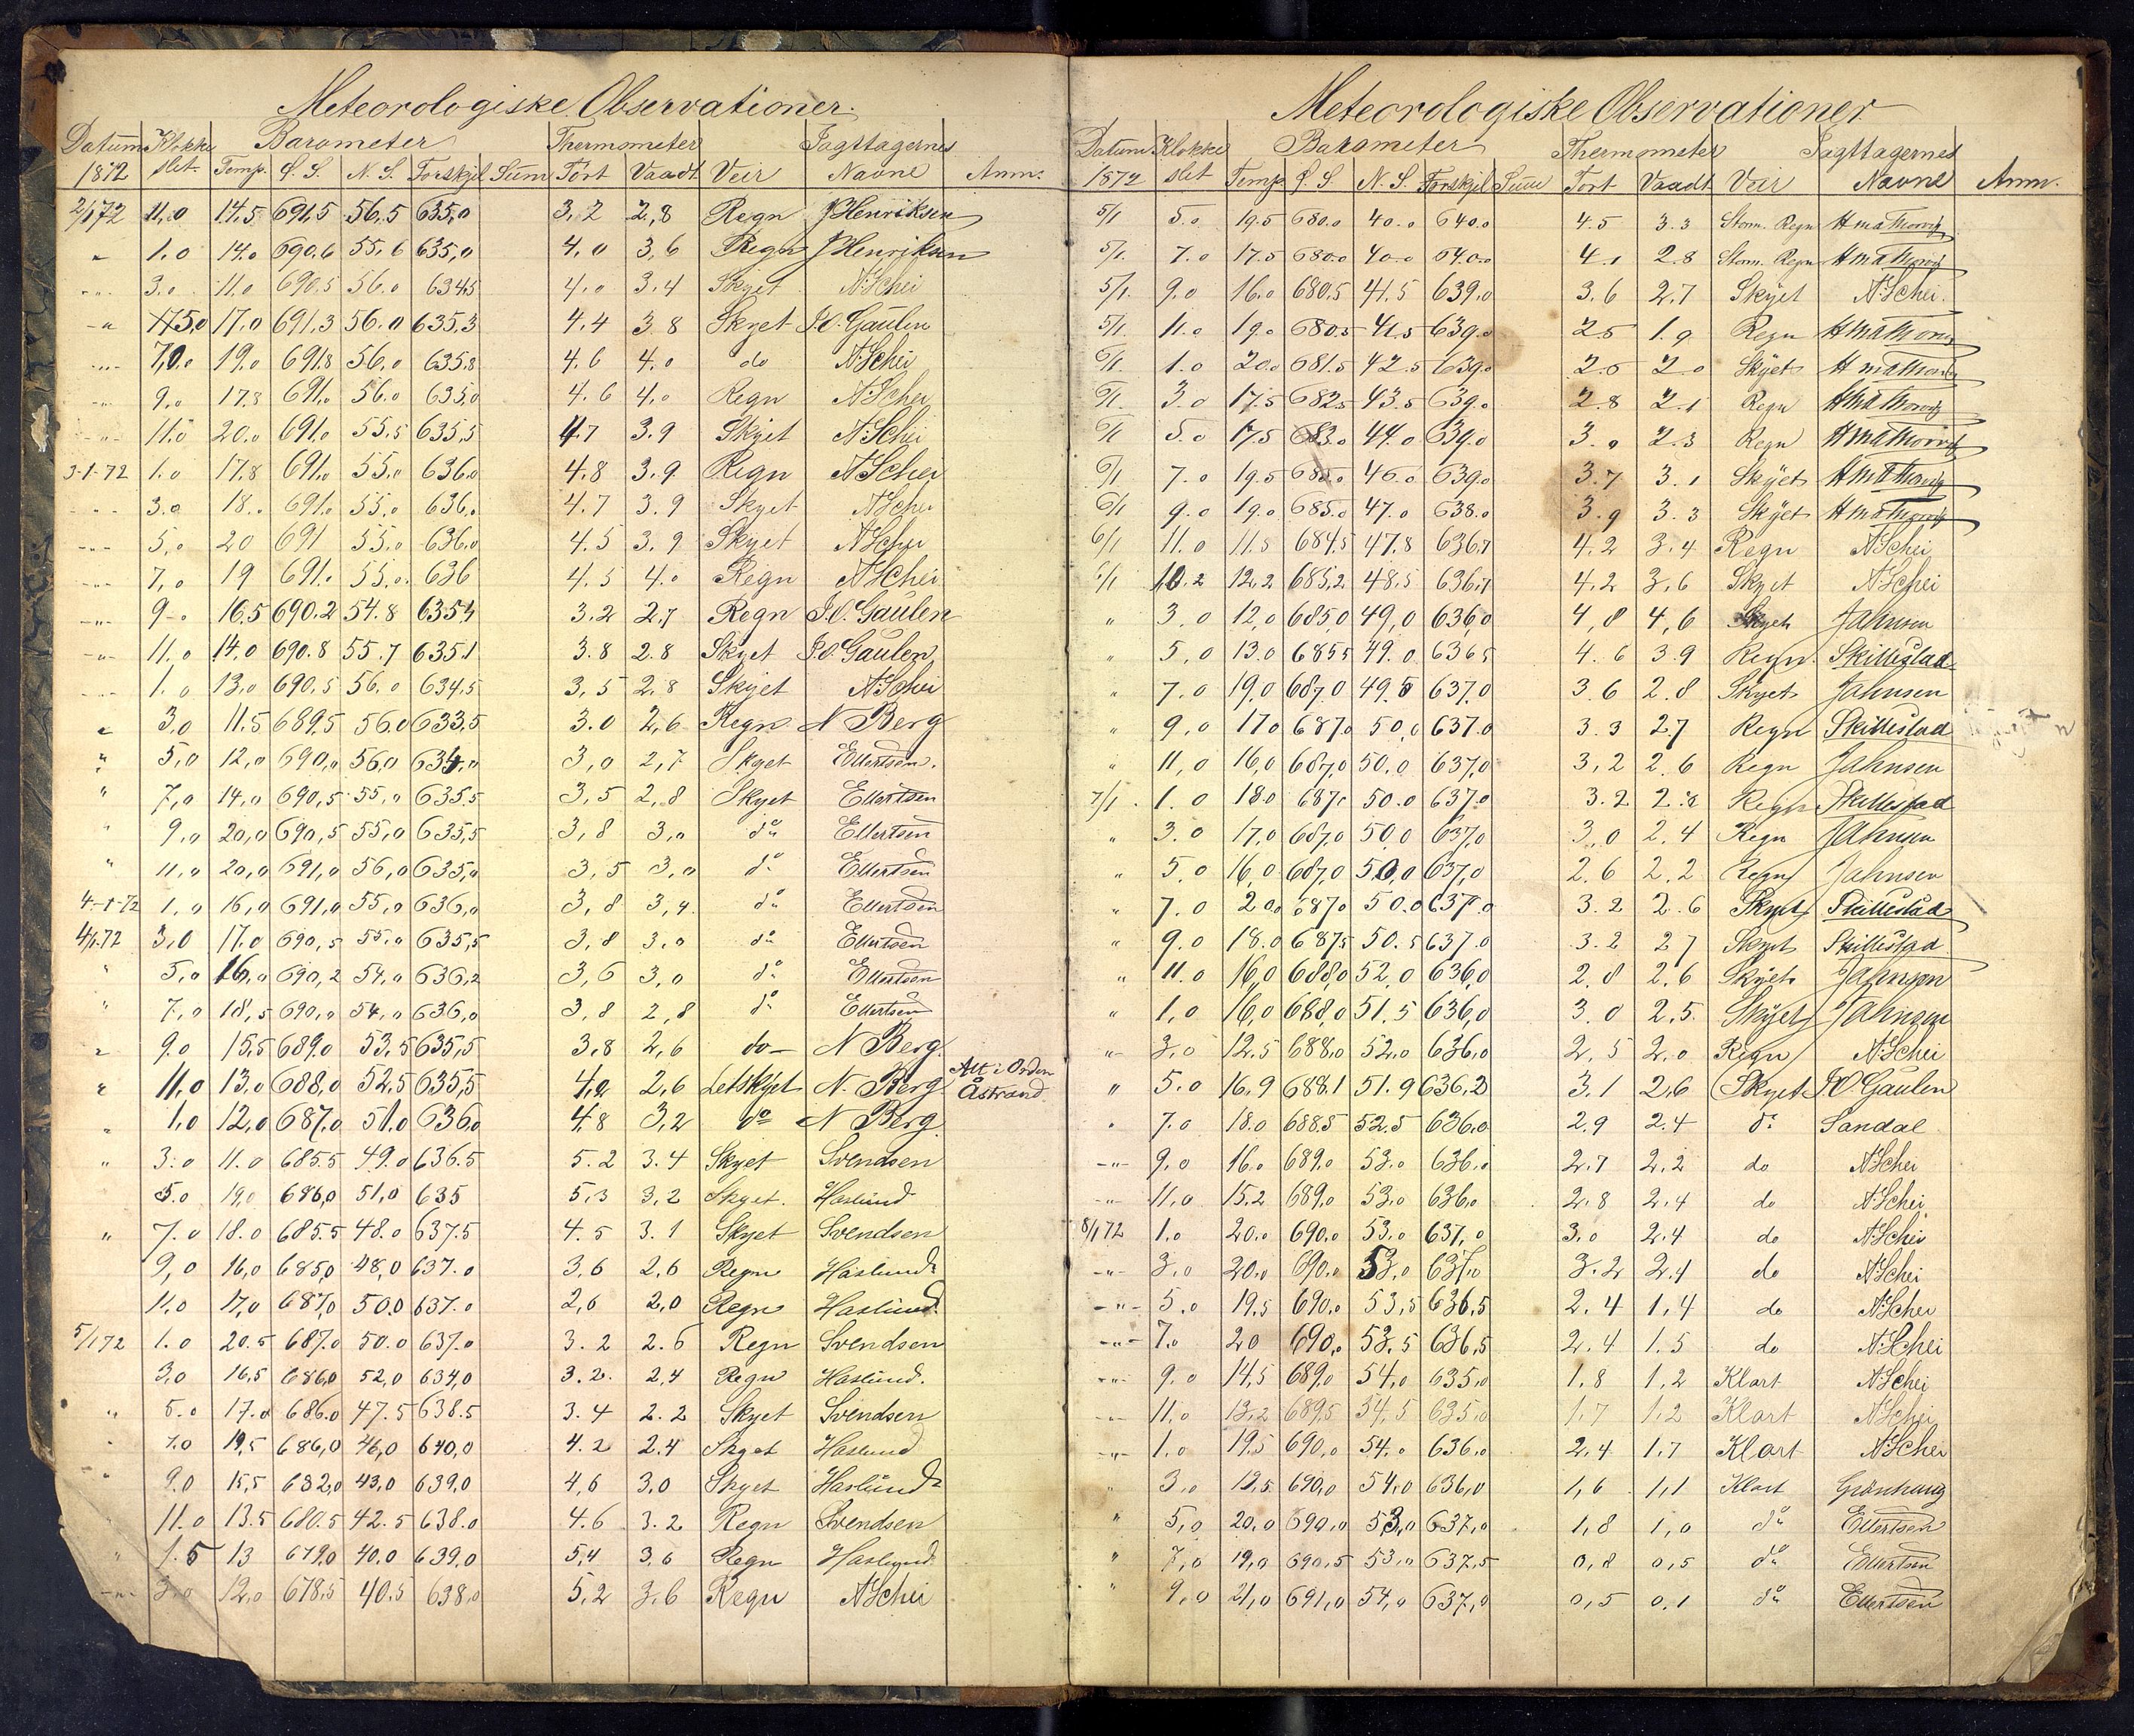 Meteorologiske Observationer.
Datum Klokke Barometer Thermometer Iagttagernes
1872 slet. Temp. Ø. S. N. S. Forskjel Süm Tört Vaadt Veir Navne Anm.
2/1 72 11,0 14.5 691,5 56,5 635,0 3,2 2,8 Regn J Henriksen
" 1.0 14.0 690,6 55,6 635,0 4,0 3,6 Regn J Henriksen
-"- 3.0 11.0 690,5 56.0 634,5 4.0 3,4 Skyet N. Schei
-" 5,0 17,0 691,3 56.0 635,3 4.4 3,8 Skyet I.O. Gaülen
-"- 7,0 19.0 691,8 56.0 635,8 4.6 4.0 do N. Schei
-"- 9.0 17.8 691.0 56.0 635,0 4.6 4.0 Regn N. Schei
-"- 11.0 20.0 691.0 55.5 635,5 4.7 3.9 Skyet N. Schei
3-1-72 1.0 17.8 691.0 55.0 636.0 4.8 3.9 Regn N. Schei
-"- 3.0 18.. 691.0 55.0 636.0 4.7 3.9 Skyet N. Schei
-"- 5,0 20 691 55.0 636,0 4.5 3.9 Skyet N. Schei
-"- 7,0 19 691.0 55.0 636 4.5 4.0 Regn N. Schei
-"- 9.0 16.5 690.2 54.8 635.4 3.2 2.7 Regn I.O. Gaülen
-"- 11.0 14.0 690.8 55.7 635.1 3.8 2.8 Skyet I.O. Gaülen
-"- 1.0 13,0 690.5 56.0 634.5 3,5 2,8 Skyet N. Schei
" 3,0 11.5 689,5 56.0 633,5 3.0 2,6 Regn N Berg
" 5,0 12,0 690,0 56,0 634,0 3,0 2,7 Skyet Ellertsen.
" 7,0 14,0 690,5 55,0 635,5 3,5 2,8 Skyet Ellertsen
" 9,0 20,0 690,5 55,0 635,5 3,8 3,0 do Ellertsen
" 11,0 20,0 691,0 56,0 635,0 3,5 3,0 do Ellertsen
4-1-72 1,0 16,0 691,0 55,0 636,0 3,8 3,4 do Ellertsen
4/1.72 3,0 17.0 690,5 55,0 635,5 3,8 3,0 do Ellertsen
" 5,0 16,0 690,2 54,0 636,2 3,6 3,0 do Ellertsen
" 7,0 18,5 690,0 54,0 636,0 3,8 2,8 do Ellertsen
" 9.0 15,5 689,0 53,5 635,5 3,8 2,6 do- N Berg.
" 11,0 13.0 688,0 52,5 635,5 4,2 2,6 Letskyet N. Berg Alt i Orden Åstrand
" 1,0 12,0 687,0 51.0 636,0 4,8 3,2 do N Berg.
" 3.0 11.0 685.5 49.0 636.5 5.2 3.4 Skyet Svendsen
5.0 19,0 686,0 51,0 635 5,3 3,2 Skyet. Haslünd
" 7.0 18.0 685.5 48.0 637.5 4.5 3.1 Skyet Svendsen
9,0 16,0 685,0 48,0 637.0 3,6 2,6 Regn Haslünd
11,0 17,0 687,0 50.0 637.0 2,6 2,0 Regn Haslünd.
5/1 72 1.0 20.5 687.0 50.0 637.0 3.2 2.6 Regn Svendsen
3,0 16,5 686,0 52,0 634,0 3.2. 2,4 Regn Haslünd.
" 5.0 17.0 686.0 47.5 638.5 3.4 2.2 Skyet Svendsen
" 7.0 19,5 686,0 46,0 640,0 4.2 2.4 Skyet Haslünd
" 9.0 15,5 682,0 43,0 639,0 4,6 3.0 Skyet Haslünd
11.0 13.5 680.5 42.5 638.0 4.6 3.2 Regn Svendsen
" 1.5 13 679,0 40.0 639,0 5,4 3,6 Regn Haslünd
-"- 3.0 12,0 678,5 40.5 638,0 5,2 3,6 Regn N. Schei
Meteorologiske Observationer
Datum Klokke Barometer Thermometer Iagttagernes
1872 slet Temp. Ø. S. N. S. Forskjel Süm Tört Vaadt Veir Navne Anm.
5/1 5.0 19.5 680.0 40.0 640.0 4.5 3.3 Storm. Regn
5/1. 7.0 17.5 680.0 40.0 640.0 4.1 2.8 Storm. Regn
5/1. 9.0 16.0 680.5 41.5 639.0 3.6 2.7 Skyet N. Schei.
5/1 11.0 19.0 680.5 41.5 639.0 2.5 1.9 Regn
6/1. 1.0 20.0 681.5 42.5 639.0 2.5 2.0 Skÿet
6/1. 3.0 17.5 682.5 43.5 639.0 2.8 2.1 Regn
6/1 5.0 17.5 683.0 44.0 639.0 3.0 2.3 Regn
6/1 7.0 19.5 685.0 46.0 639.0 3.7 3.1 Skÿet
6/1 9.0 19.0 685.0 47.0 638.0 3.9 3.3 Skÿet
6/1 11.0 11.5 684.5 47.8 636.7 4.2 3.4 Regn N. Schei
6/1 10.2 12.2 685,2 48.5 636.7 4.2 3.6 Skyet N. Schei
" 3.0 12,0 685,0 49,0 636,0 4,8 4,6 Skyet Jahnsen
" 5.0 13.0 685.5 49.0 636.5 4.6 3.9 Regn. Skillestad
" 7.0 19,0 687,0 49.5 637.0 3 6 2.8 Skyet Jahnsen
" 9.0 17.0 687.0 50,0 637.0 3.3 2.7 Regn Skillestad
" 11,0 16,0 687,0 50.0 637,0 3,2 2.6 Regn Jahnsen
7/1. 1.0 18.0 687.0 50.0 637.0 3.2 2.8 Regn Skillestad
" 3.0 17,0 687,0 50,0 637,0 3,0 2.4 Regn Jahnsen
" 5.0 16,0 687,0 50,0 637,0 2.6 2.2 Regn Jahnsen
" 7.0 20.0 687.0 50.0 637.0 3.2 2.6 Skyet Skillestad
" 9.0 18.0 687.5 50.5 637.0 3.2 2.7 Skyet Skillestad
" 11.0 16,0 688,0 52,0 636,0 2.8 2.6 Skÿet Jahnsen
" 1,0 16,0 688,0 51.5 636,0 3.0 2.5. Skÿet Jahnsen
-"- 3,0 12.5 688,0 52.0 636,0 2,5 2.0 Regn N. Schei
" 5.0 16.9 688.1 51.9 636.2 3.1 2,6 Skyet I.O Gaülen
" 7.0 18.0 688.5 52.5 636,0 2.9 2.4 do Sandal
-"- 9,0 16.0 689,0 53.0 636.0 2.7 2,2 do N. Schei
-"- 11,0 15.2 689,0 53,0 636,0 2.8 2.4 do N. Schei
8/1 72 1.0 20.0 690.0 53.0 637,0 3.0 2.4 do N. Schei
-"- 3,0 20.0 690.0 53,0 637,0 3.2 2.4 do N. Schei
-"- 5.0 19.5 690.0 53,5 636,5 2.4 1,4 do N. Schei
-"- 7.0 20 690,0 53.5 636,5 2.4 1.5 do N. Schei
-"- 9.0 14,5 689,0 54,0 635,0 1,8 1,2 Klart N. Schei
-"- 11,0 13.2 689,5 54,5 635,0 1,7 1,2 Klart N. Schei
-"- 1.0 19.5 690,0 54.0 636.0 2.4 1.7 Klart N. Schei
" 3,0 12,5 690,0 54,0 636,0 1,6 1,1 Klart
" 5,0 20,0 690,0 53,0 637,0 1,8 1,0 do Ellertsen
" 7,0 19,0 690,5 53,0 637,5 0,8 0,5 do Ellertsen
" 9,0 21,0 691,0 54,0 637,0 0,5 0,1 do Ellertsen